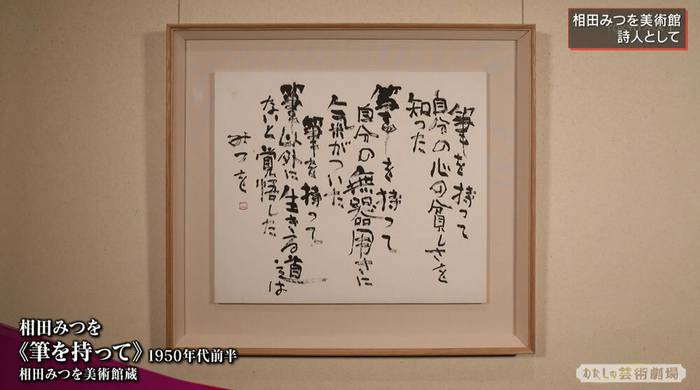 相田みつを美術館
詩人として
筆を持って
自分の心の貧しさを
知った
筆を持って
自分の無器用さに
気がついた
筆を持って
筆以外に生きる道は
ないと覚悟した
みつを
相田みつを
《筆を持って》 1950年代前半
相田みつを美術館蔵
わたしの芸術劇場